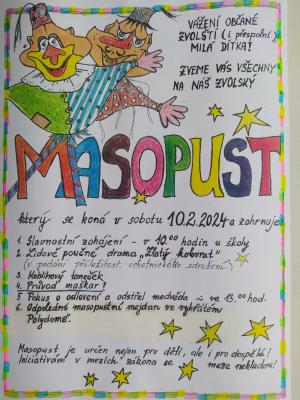 VÁŽENÍ OBČANÉ
ZVOLŠTÍ (i přespolní),
MILÁ DÍTKA!
ZVEME VÁS VŠECHNY
NA NÁŠ ZVOLSKÝ
MASOPUST
který se koná v sobotu 10.2.2024 a zahrnuje
1. Slavnostní zahájení - v 10.00 hodin u školy
2. Lidové poučné drama "Zlatý kolovrat"
(v podání příležitost. ochotnického sdružení)
3. Koblihový taneček
4. Průvod maškar!
5. Pokus o odlovení a odstřel medvěda ~ ve 13.00 hod.
6. Odpolední masopustní mejdan ve vyhřátém
Polydomě.
Masopust je určen nejen pro děti, ale i pro dospělé!
Iniciativám v mezích zákona se meze nekladou!